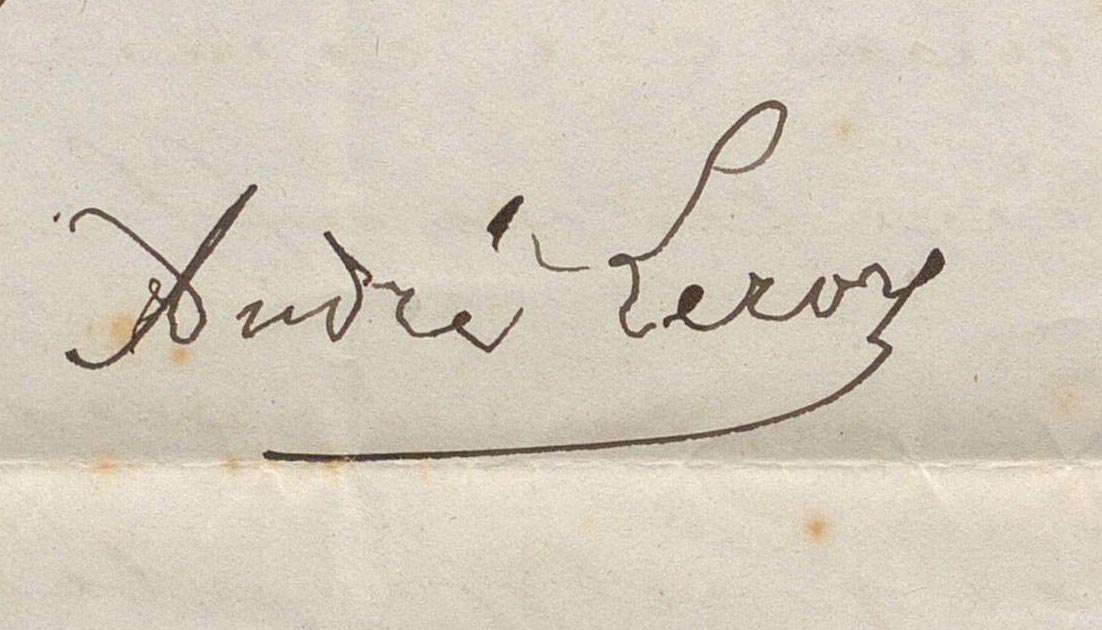 André Leroy